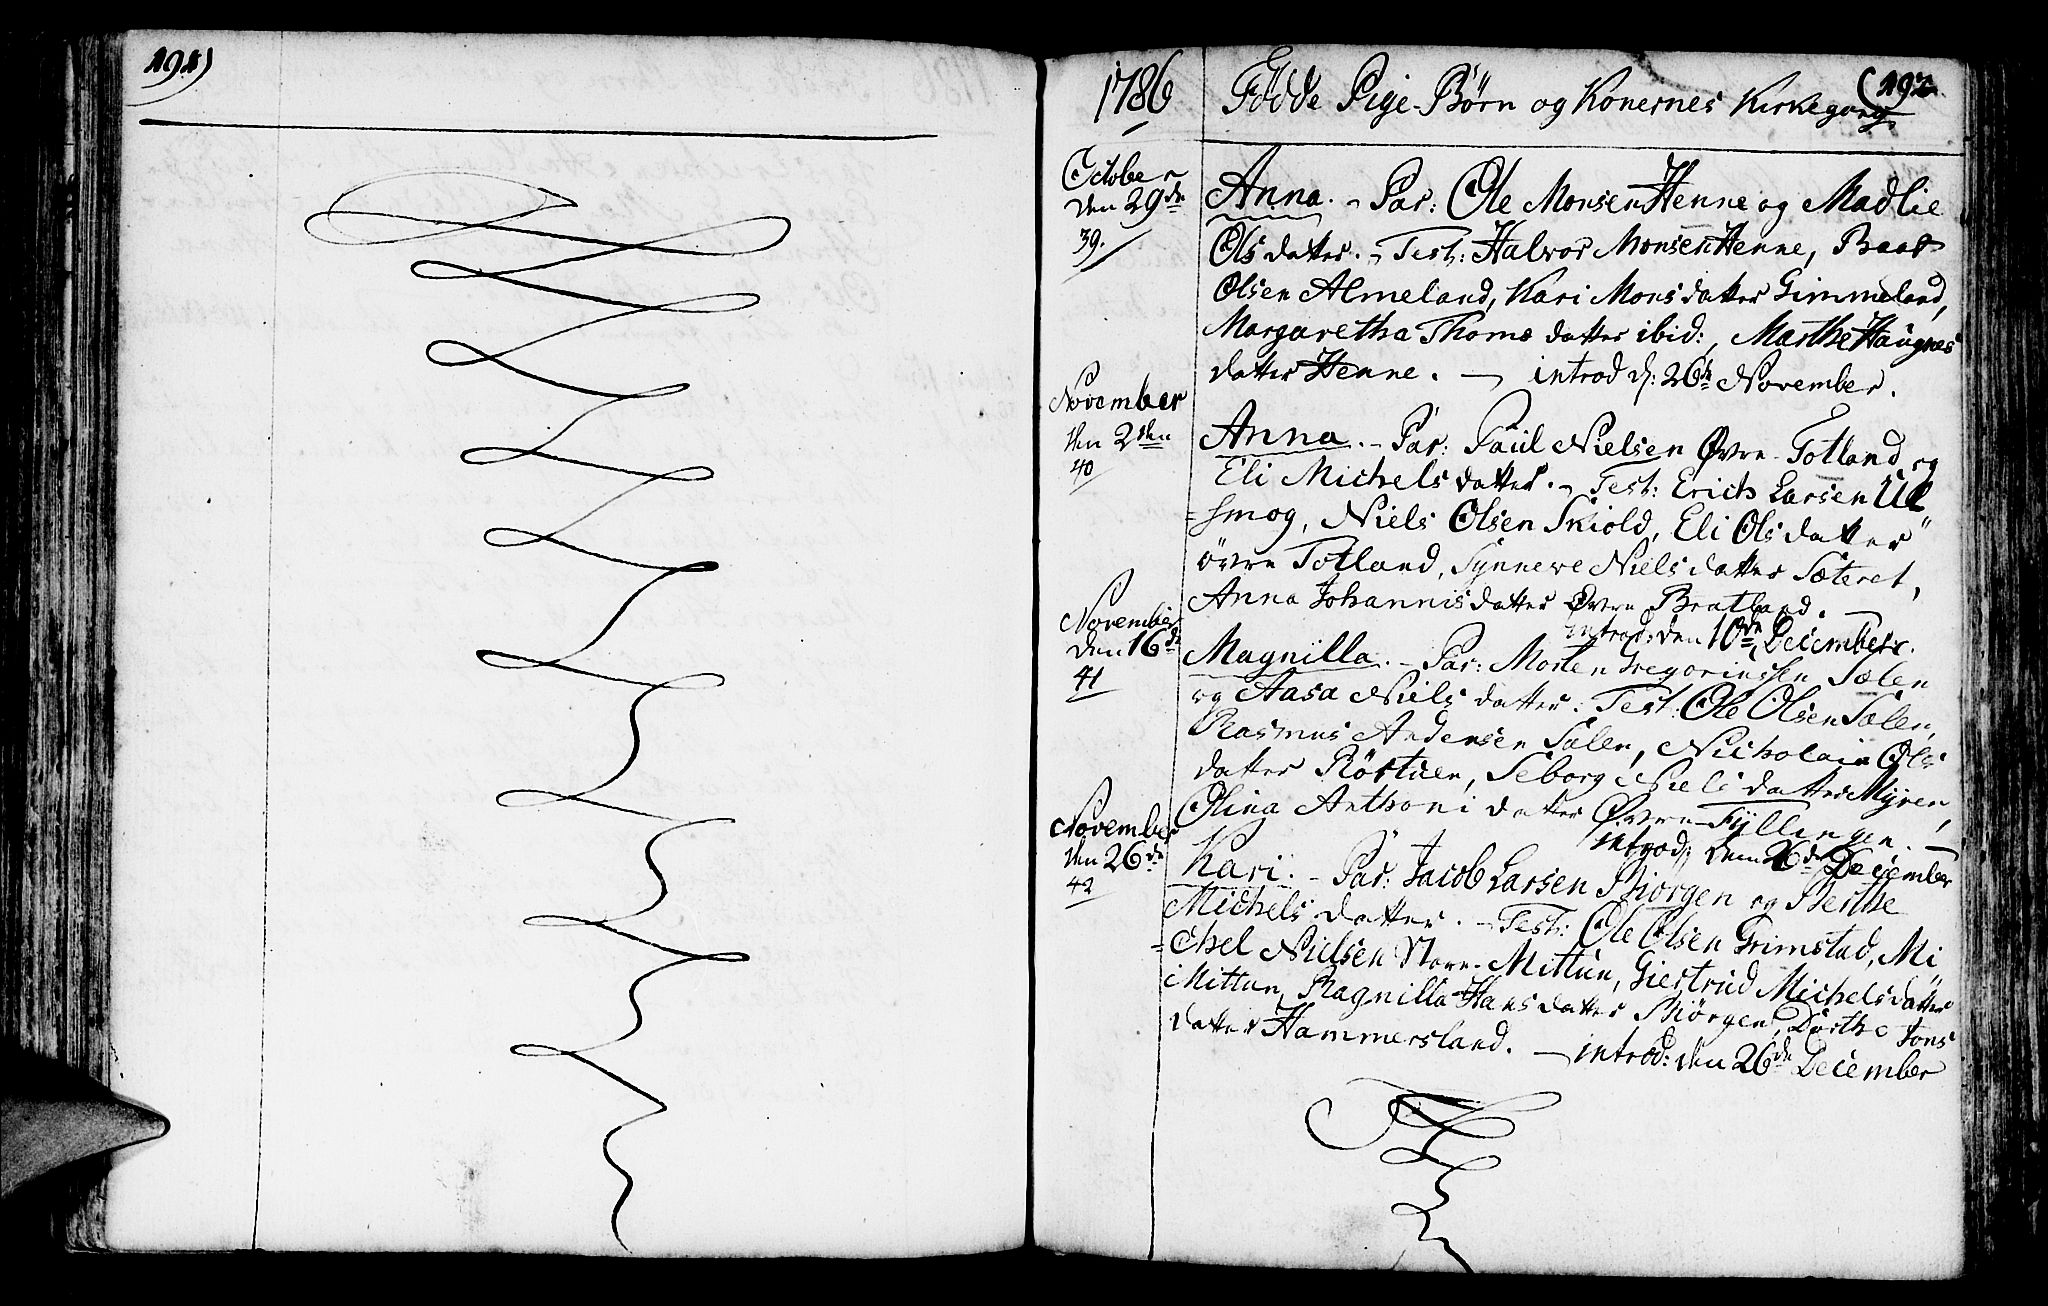 191)
1786 Födde Pige-Börn og Konernes Kirkegang (192
October
den 29de
39.
Anna. - Par: Ole Monsen Henne og Madlie
Olsdatter. - Test: Halvor Monsen Henne, Baar
Olsen Almeland, Kari Monsdatter Gimmeland,
Margaretha Thomædatter ibid:, Marthe Haugnes
datter Henne. - introd d: 26de November.
November
den 2den
40
Anna. - Par: Paul Nielsen Øvre-Totland og
Eli Michelsdatter. - Test: Erich Larsen Ul
=smog, Niels Olsen Skiold, Eli Olsdatter
övre Totland, Synneve Nielsdatter Sæteret,
Anna Johannisdatter Øvre Bratland. -
introd: den 10de December.
November
den 16de
41
Magnilla. - Par: Morten Gregoriussen Sælen
og Aasa Nielsdatter. Test: Ole Olsen Sælen,
Rasmus Andersen Sælen, Nicholain Ols
datter Röstuen, Seborg Nielsdatter Myren,
Olina Anthonidatter Øvre-Fyllingen. -
introd: den 26de December
November
den 26de
42
Kari. - Par: Jacob Larsen Biörgen og Berthe
Michelsdatter. - Test: Ole Olsen Grimstad, Mi
=chel Nielsen Store-Mittun, Giertrud Michelsdatter
Mittun, Ragnilla Hansdatter Biörgen, Dorthe Jons
datter Hammersland. - introd: den 26de December